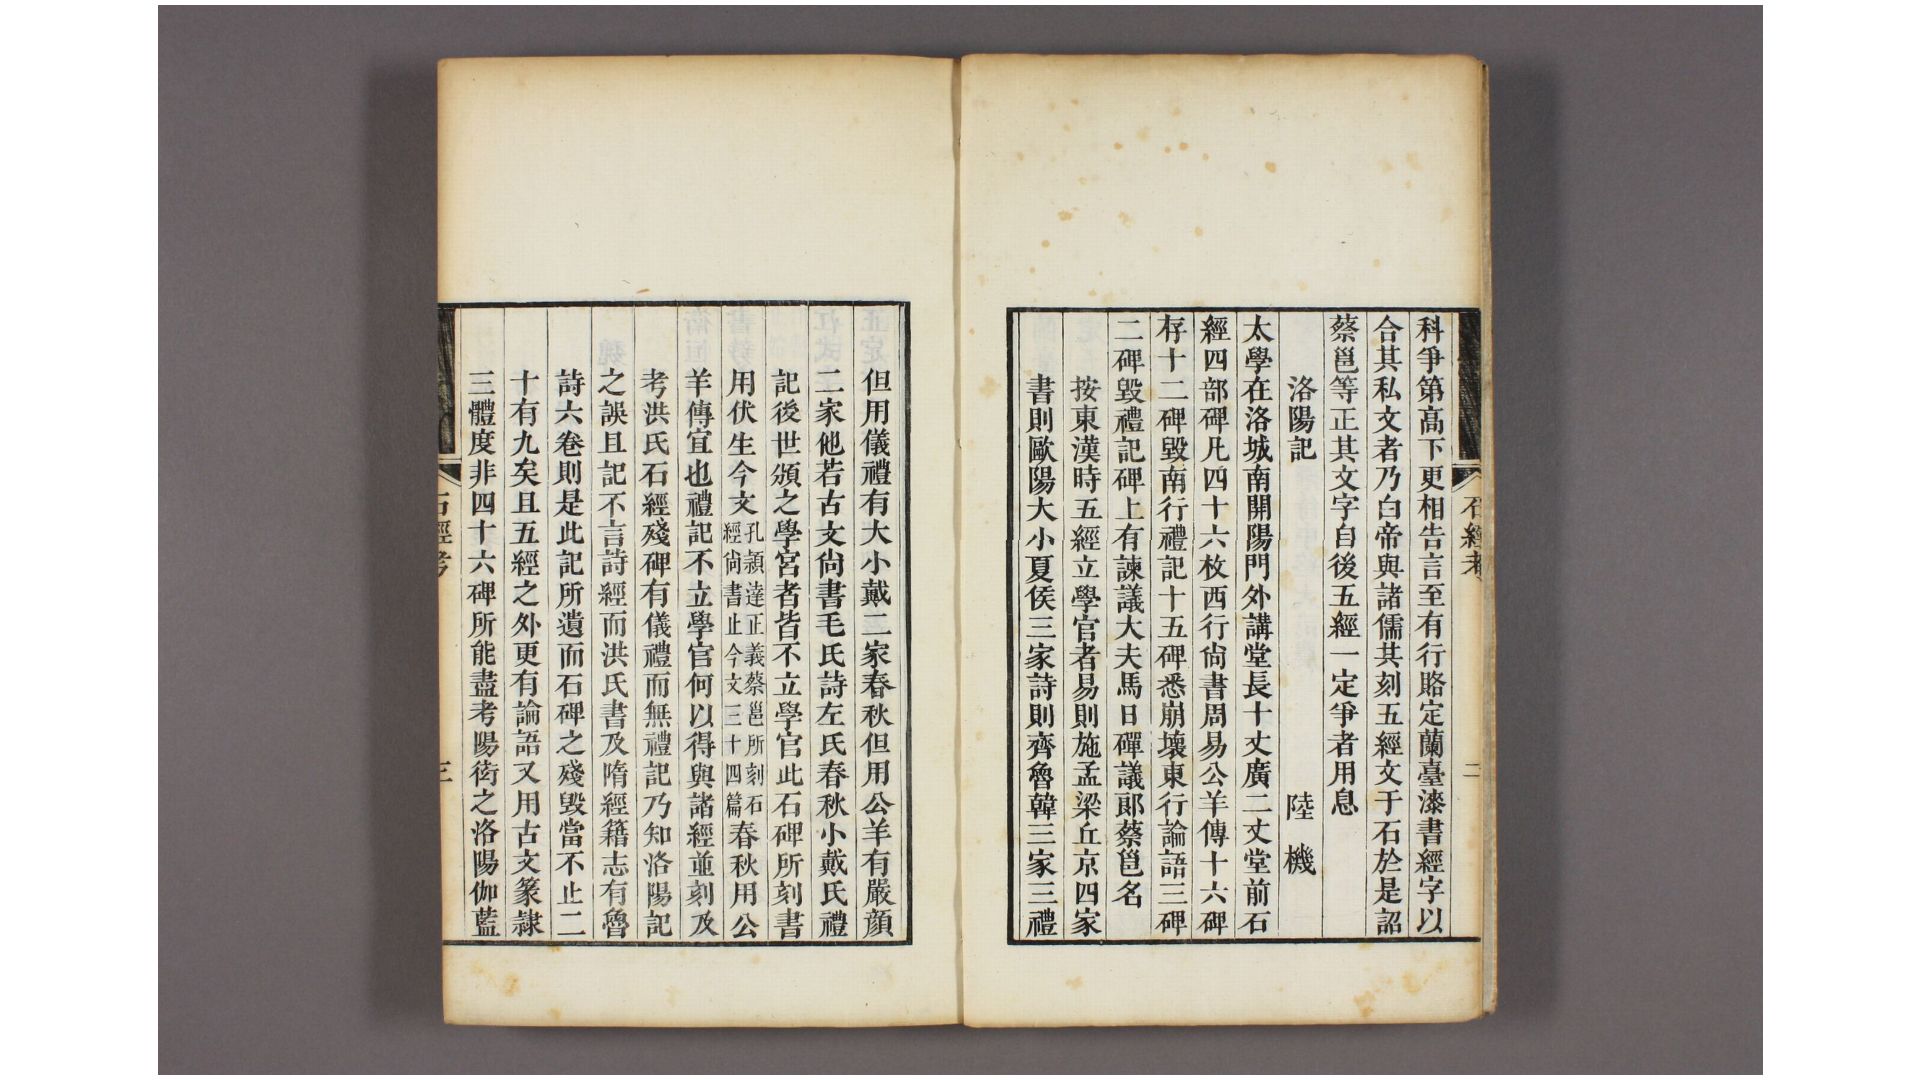 科爭第高下更相告言至有行賂定蘭臺漆書經字以
合其私文者乃白帝與諸儒共刻五經文于石於是詔
蔡邕等正其文字自後五經一定爭者用息
洛陽記 陸機
太學在洛城南開陽門外講堂長十丈廣二丈堂前石
經四部碑凡四十六枚西行尙書周易公羊傳十六碑
存十二碑毀南行禮記十五碑悉崩壞東行論語三碑
二碑毀禮記碑上有諫議大夫馬日磾議郞蔡邕名
按東漢時五經立學官者易則施孟梁丘京四家
書則歐陽大小夏侯三家詩則齊魯韓三家三禮
石經考
二
但用儀禮有大小戴二家春秋但用公羊有嚴顏
二家他若古文尙書毛氏詩左氏春秋小戴氏禮
記後世頒之學宮者皆不立學官此石碑所刻書
用伏生今文孔頴達正義蔡邕所刻石經尙書止今文三十四篇春秋用公
羊傳宜也禮記不立學官何以得與諸經並刻及
考洪氏石經殘碑有儀禮而無禮記乃知洛陽記
之誤且記不言詩經而洪氏書及隋經籍志有魯
詩六卷則是此記所遺而石碑之殘毀當不止二
十有九矣且五經之外更有論語又用古文篆隷
三體度非四十六碑所能盡考陽衒之洛陽伽藍
石經考
三